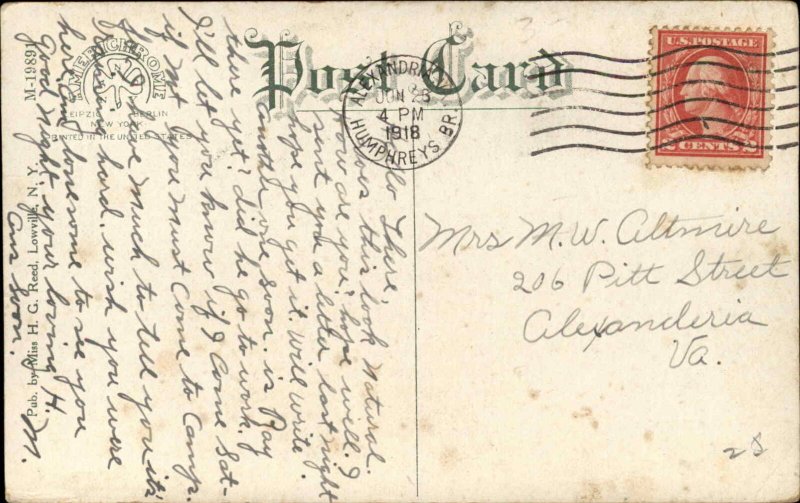 Post Card
M-19891
AMERICHROME
LEIPZIG BERLIN
NEW YORK
PRINTED IN THE UNITED STATES
Pub. by Miss H. G. Reed, Lowville, N. Y.
ALEXANDRIA
JUN 25
4 PM
1918
HUMPHREYS BR.
U.S. POSTAGE
2 CENTS 2
Mrs M.W. Altmire
206 Pitt Street
Alexanderia
Va.
28
Hello There,
Does this look Natural.
How are you? hope will. I
sent you a letter last night
hope you get it. will write
another one soon. is Ray
there yet? did he go to work.
I'll let you know if I come Sat-
if not you must come to Camp.
have much to tell you its
raining hard. wish you were
here. am lonesome to see you
Good Night. your loving H.
Ans Soon. M.